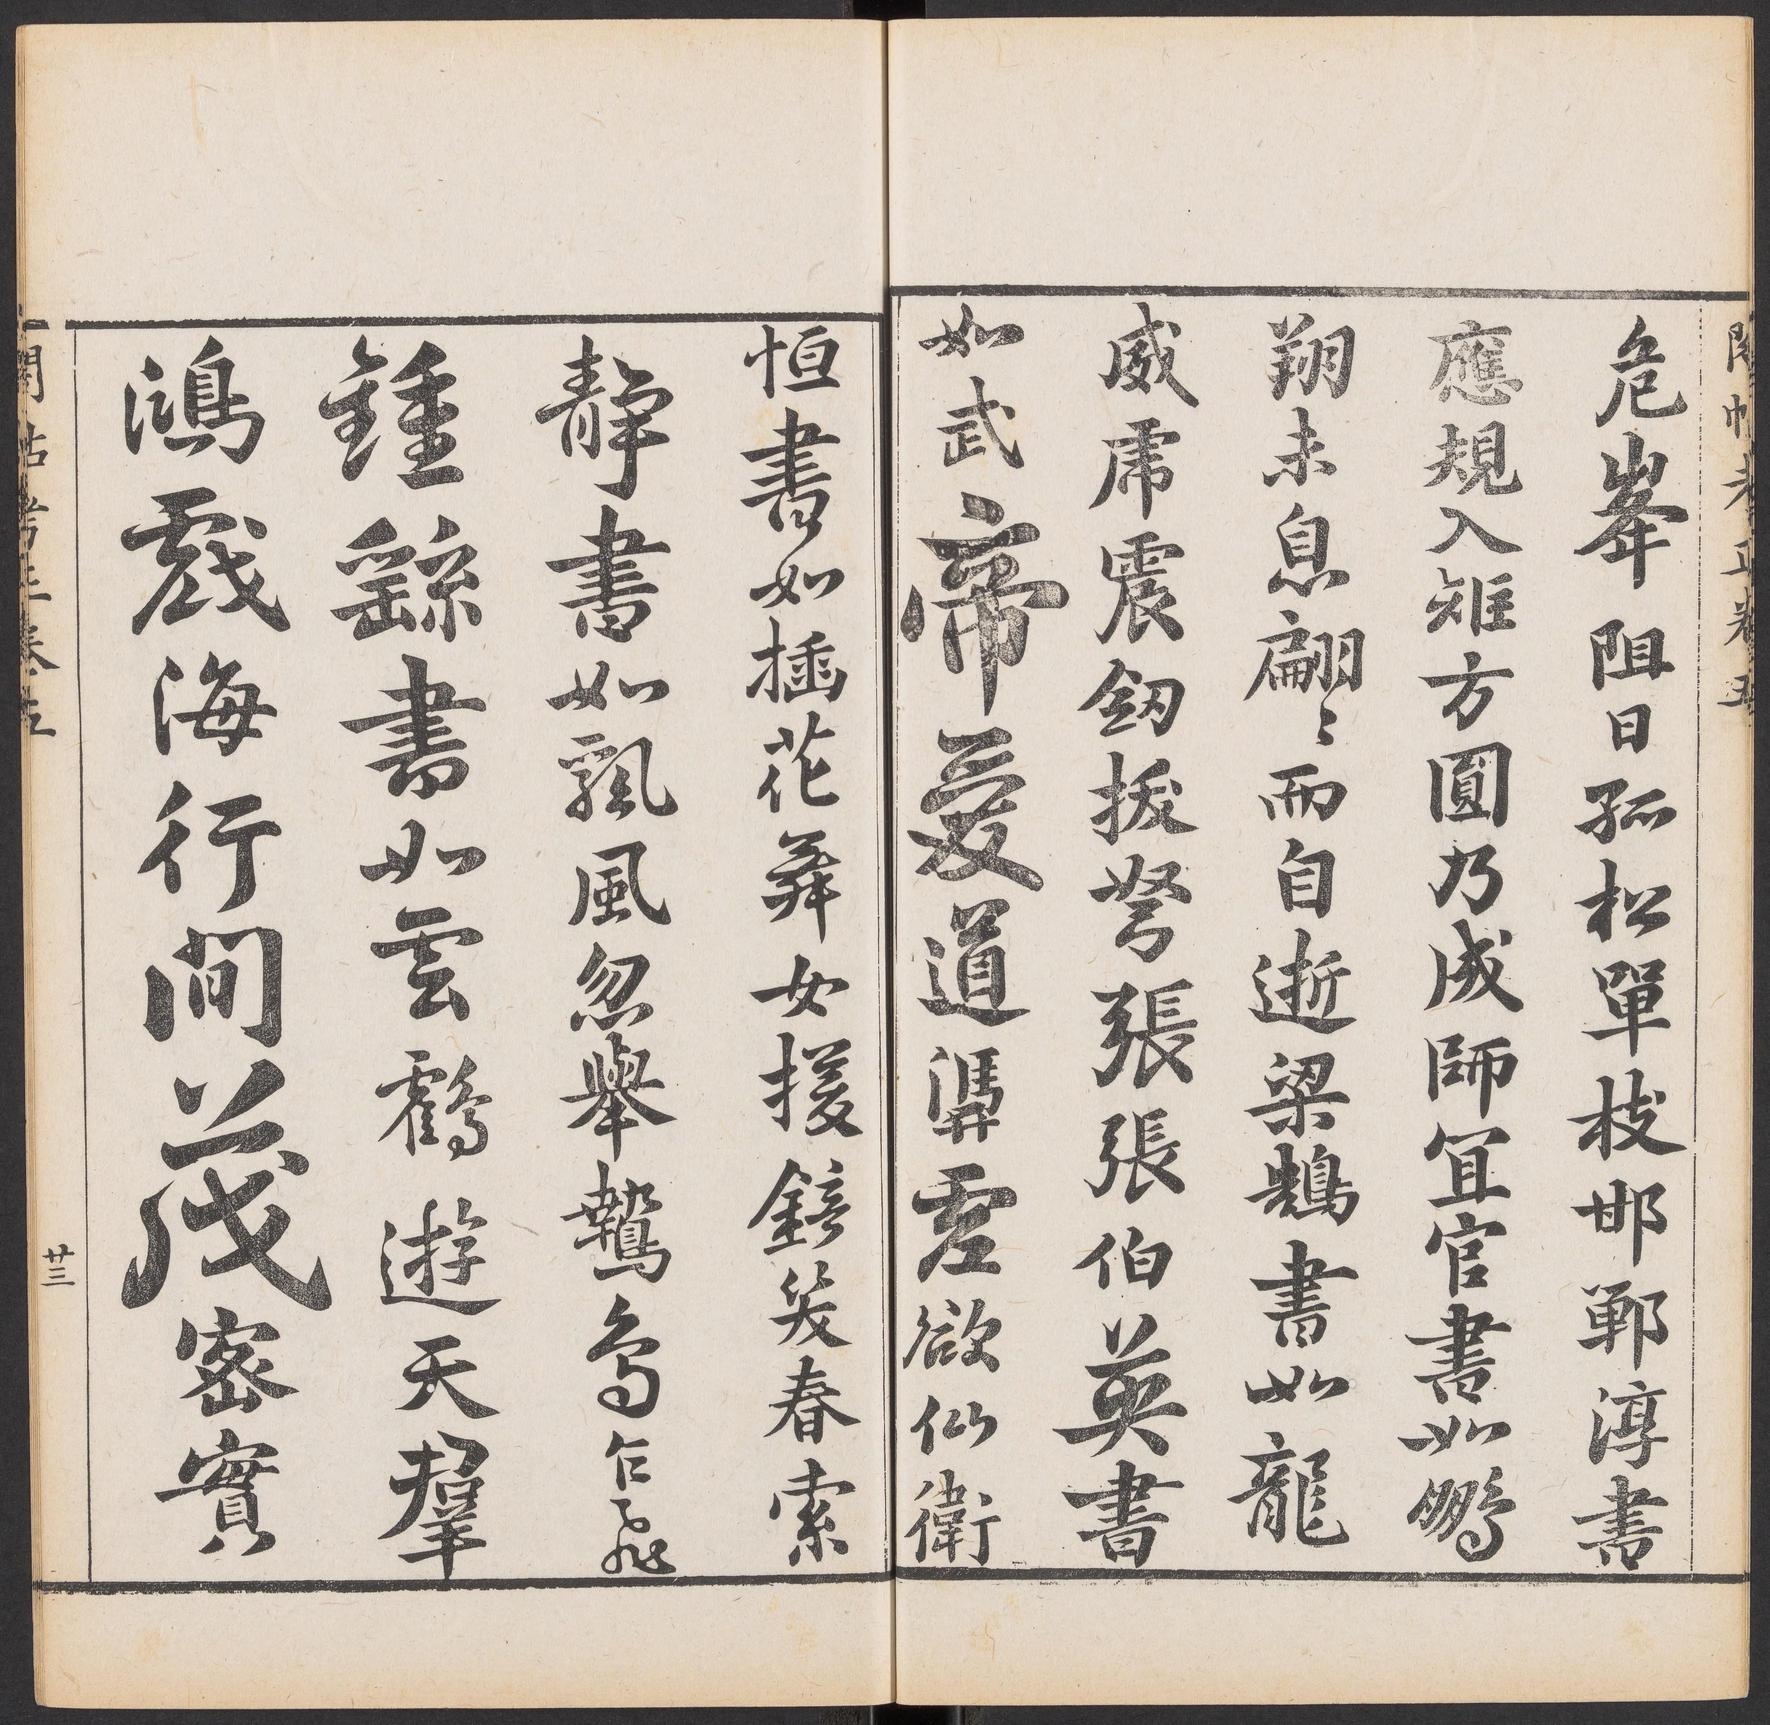 危峯阻日孤松單枝邯鄲淳書
應規入矩方圓乃成師宜官書如鵬
翔未息翩〻而自逝梁鵠書如龍
威虎震劒拔弩張張伯英書
如武帝愛道馮虛欲仙衛
恒書如插花舞女援鏡笑春索
靖書如飄風忽舉鷙鳥乍飛
鍾繇書如雲鶴遊天羣
鴻戲海行間茂密實
閣帖考正卷五
廿三